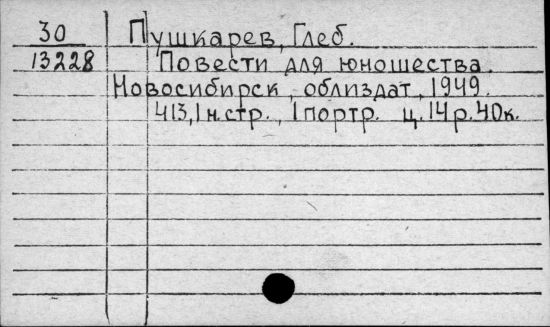 30 Пушкарев, Глеб.
13228 Повести для юношества.
Новосибирск, облиздат, 1949.
413, 1 н. стр., 1 портр. ц. 14 р. 40 к.